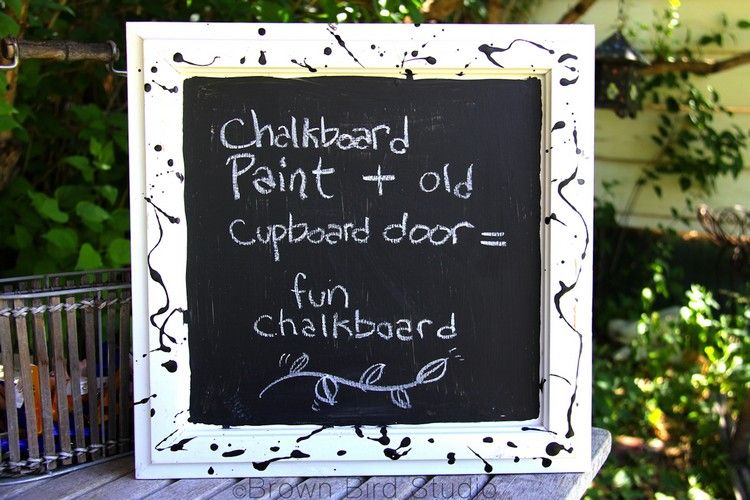 Chalkboard
Paint + old
Cupboard door =
fun
chalkboard
©Brown Bird Studio